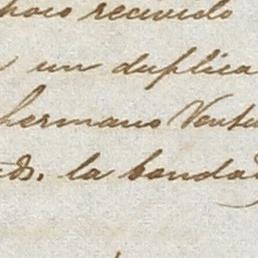 recivido
un duplica
hermano Ventu
ds. la bondad